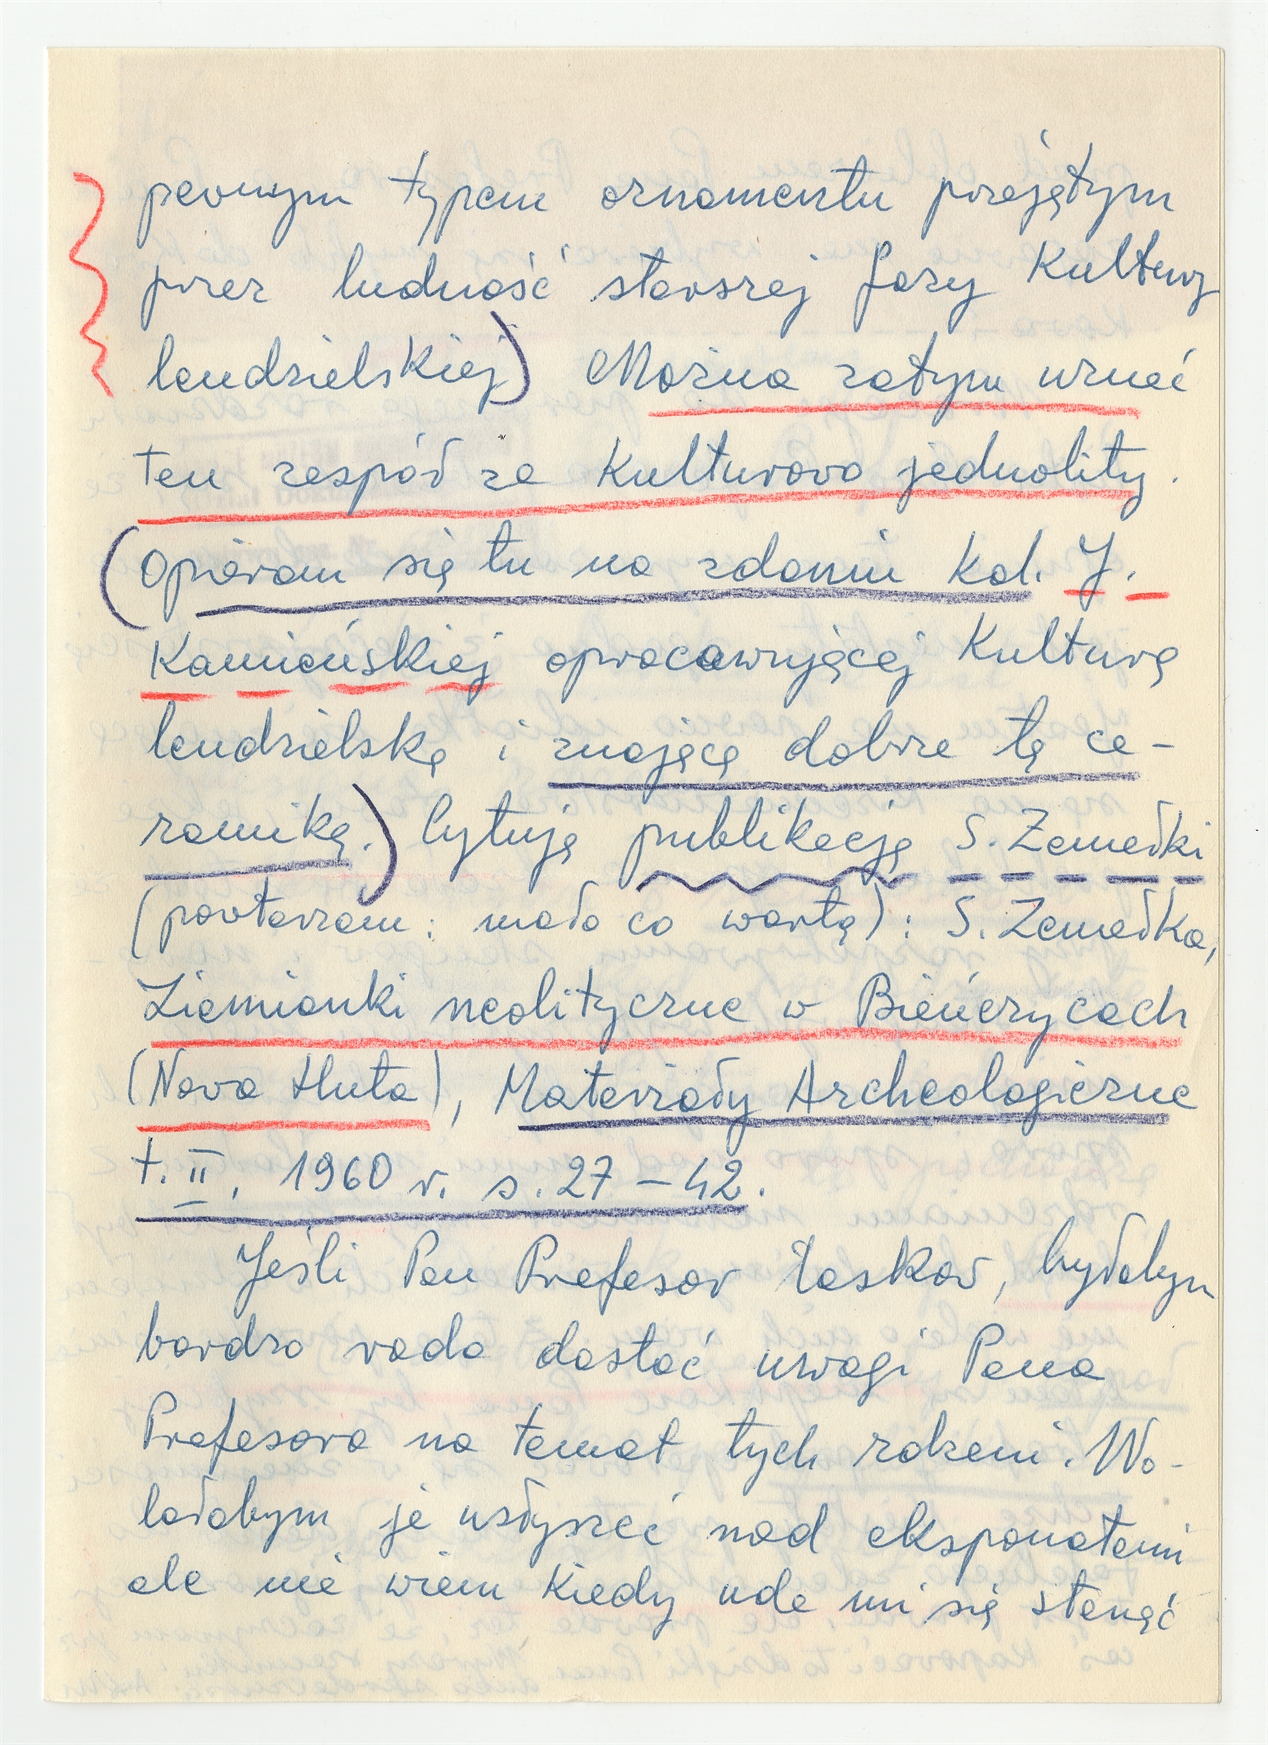 pewnym typem ornamentu przejętym
przez ludność starszej fazy Kultury
lendzielskiej) Można zatym uznać
ten zespół za Kulturowo jednolity.
(Opieram się tu na zdaniu kol. J.
Kamieńskiej opracowującej Kulturę
lendzielską i znającą dobrze tę ce-
ramikę.) Cytuję publikację S. Zemełki
(powtarzam: mało co wartą): S. Zemełka,
Ziemianki neolityczne w Bieńczycach
(Nowa Huta), Materiały Archeologiczne
t. II, 1960 r. s. 27 – 42.
Jeśli Pan Profesor łaskaw, byłabym
bardzo rada dostać uwagi Pana
Profesora na temat tych rdzeni. Wo-
lałabym je usłyszeć nad eksponatami
ale nie wiem kiedy uda mi się stanąć